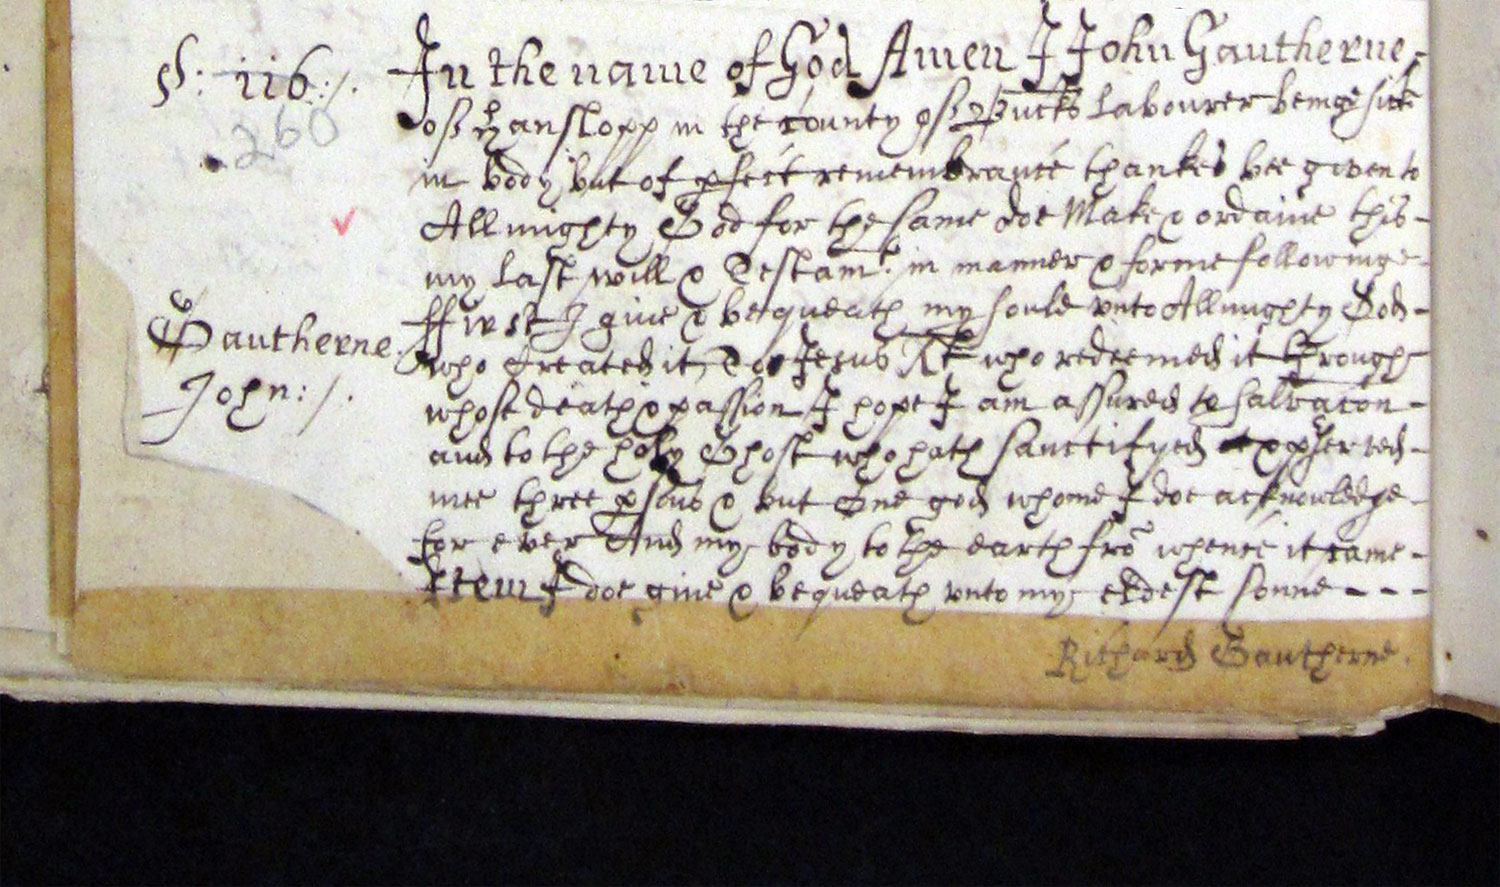 S: 116:/.
260
In the name of God Amen I John Gautherne
of Hanslopp in the County of Bucks Labourer beinge sicke
in body but of pfect remembrance thankes bee given to
Allmighty God for the same doe Make & ordaine this
my last will & Testamt. in manner & forme followinge
ffirst I give & bequeath my soule unto Allmighty God
who Created it, To Jesus Xt who redeemed it through
whose death & passion I hope I am assured to salvacon
and to the holy Ghost who hath sanctifyed & pserved
mee three psons & but one god whome I doe acknowledge
for ever And my body to the earth fro whence it came
Item I doe give & bequeath unto my eldest sonne - - -
Richard Gautherne.
Gautherne
John:/.